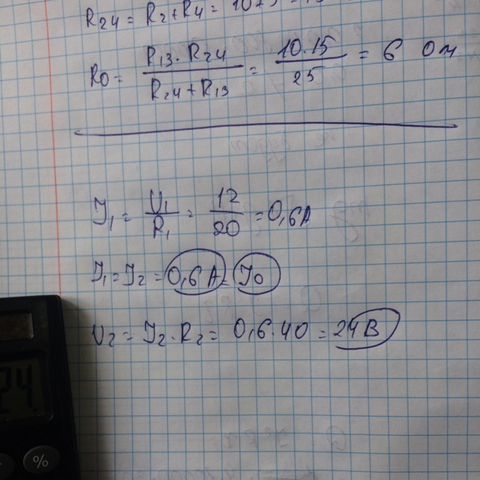 R24 = R2 + R4 = 10+5 =
R0 = R13 · R24 / R24 + R13 = 10 · 15 / 25 = 6 Ом
I1 = U1 / R1 = 12 / 20 = 0,6А
I1 = I2 = 0,6А = I0
U2 = I2 · R2 = 0,6 · 40 = 24В
24
%